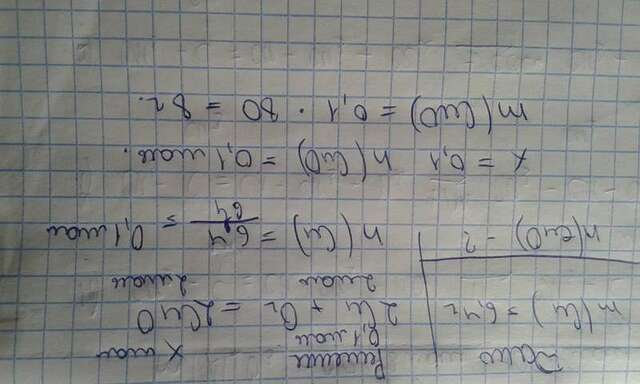 Дано Решение x моль
0,1 моль
m(Cu) = 6,4 г 2Cu + O₂ = 2CuO
2моль 2моль
n(CuO) - ? n(Cu) = 6,4/64 = 0,1 моль
x = 0,1 n(CuO) = 0,1 моль.
m(CuO) = 0,1 · 80 = 8 г.